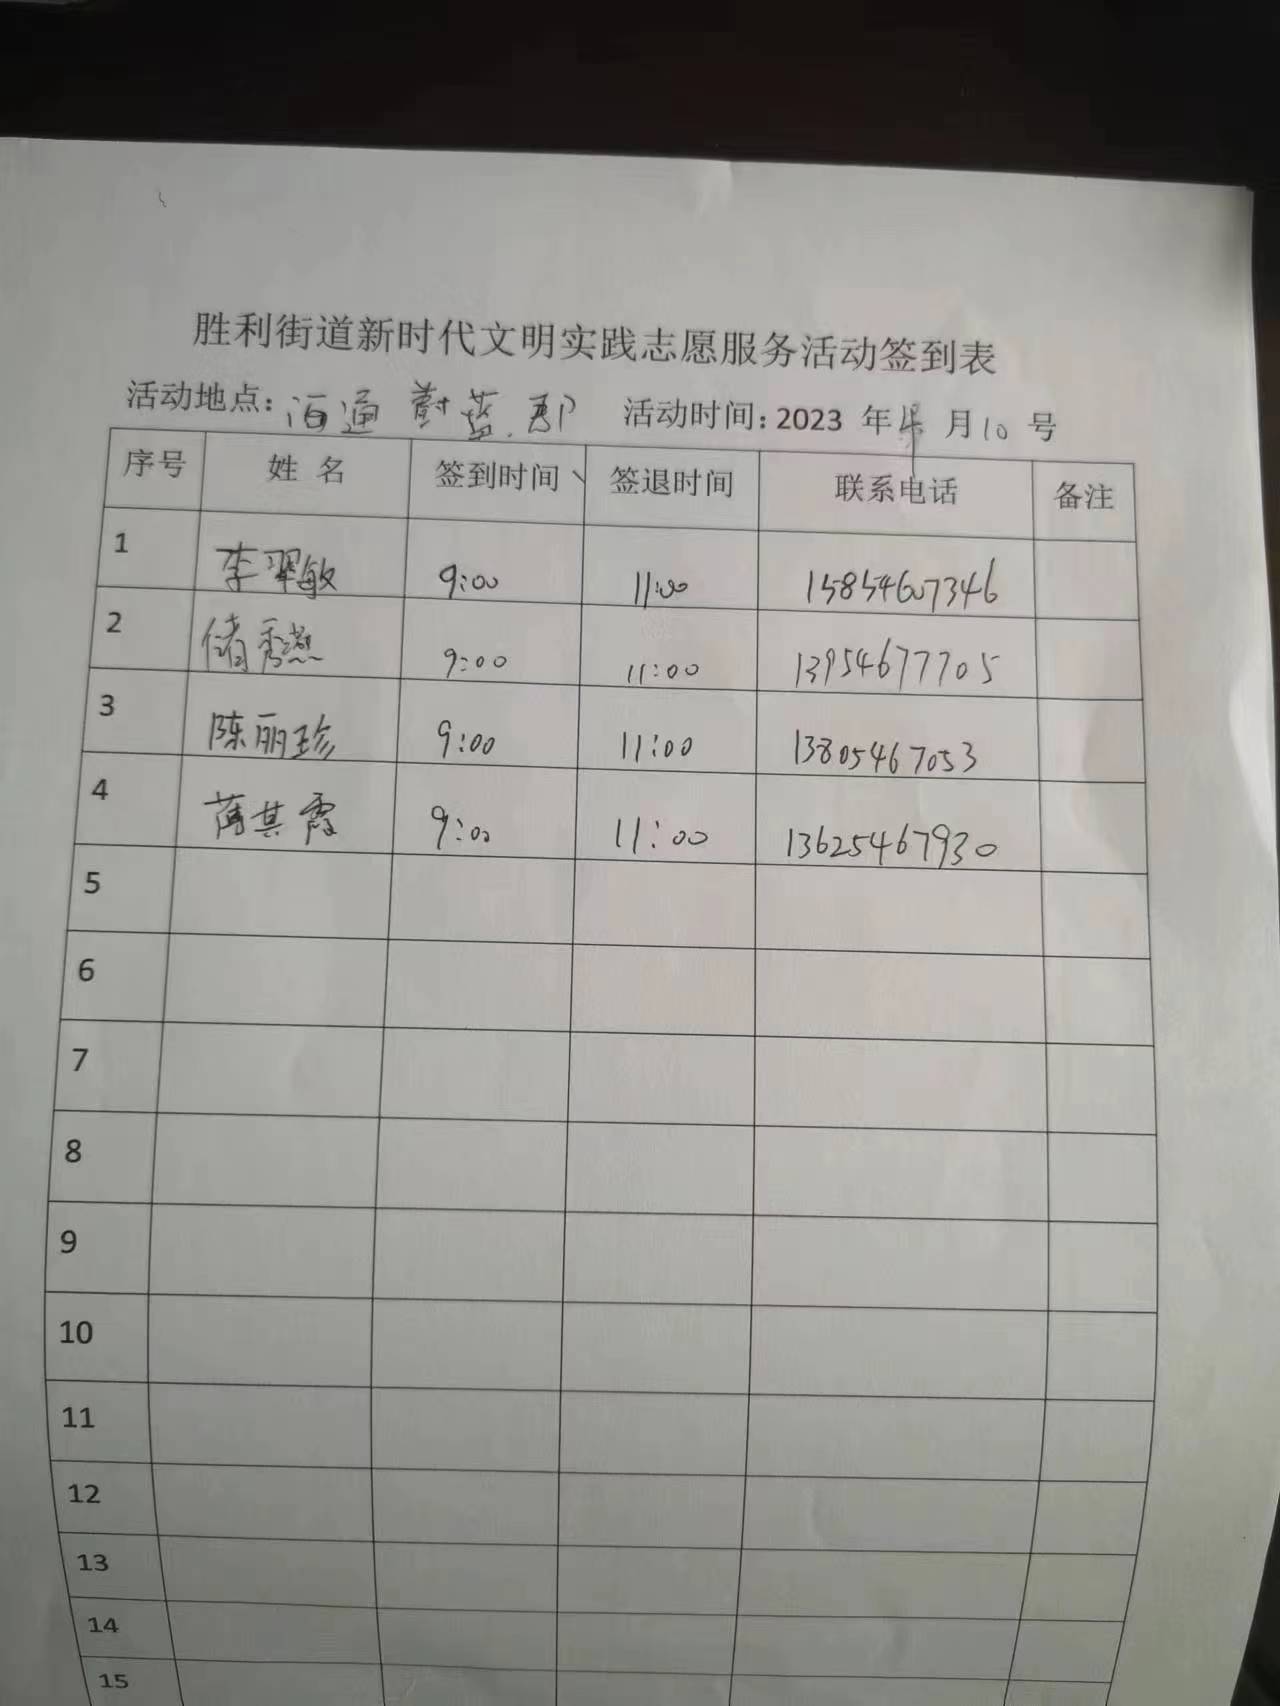 胜利街道新时代文明实践志愿服务活动签到表
活动地点: 海通 蔚蓝.郡 活动时间: 2023 年 4 月 10 号
序号 姓 名 签到时间 签退时间 联系电话 备注
1 李翠敏 9:00 11:00 15854607346
2 储秀燕 9:00 11:00 13954677705
3 陈丽珍 9:00 11:00 13805467053
4 薄其霞 9:00 11:00 13625467930
5
6
7
8
9
10
11
12
13
14
15